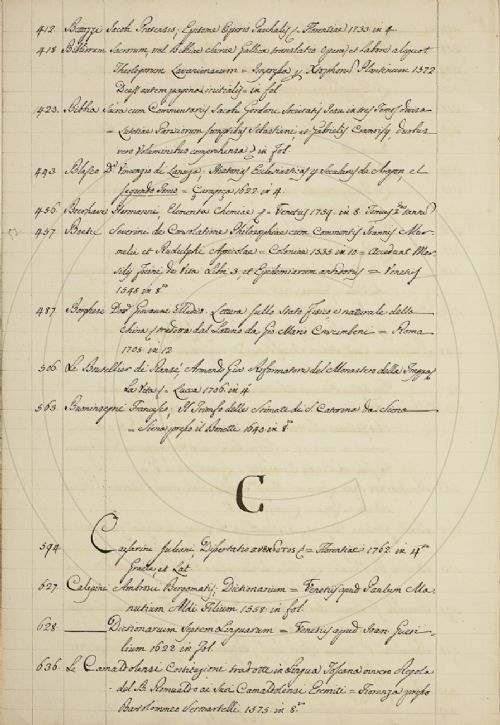 412. Jacob. Pratensis; Epitome Operis Paschalis Florentiae 1733 in 4.
418 Bibliorum Sacrorum, translatio opera, et Labore aliquot
Theologorum Lovaniensium = Plantinum 1572
Deest autem pagina initialis = in fol.
423. Biblia Sacra cum Commentariis Jacobi Gordoni Societatis Jesu in tres Tomos divisa
= Lutetiae Parisiorum Sebastiani, et Gabrielis Cramoisy, duobus
vero Voluminibus comprehensa in fol.
443. Blasco Dn. Vincenzio de Lanuza, Historias Ecclesiasticas y Seculares de Aragon, el
segundo Tomo = Çaragoça 1622 in 4.
456 Boerhave Hermanni, Elementa Chemiae = Venetiis 1759. in 8.
457. Boetii Severini de Consolatione Philosophiae cum Commentis Joannis Mur-
melii et Rudolphi Agricolae = Coloniae 1535 in 10 = Accedunt Mar-
silij Ficini de Vita Libri 3, et Epidemiarum antidotus = Venetiis
1548 in 8.
487. Borghese Giovanni Lettera sullo Stato fisico e naturale della
China tradotta dal Latino da Gio Mario Crescimbeni = Roma
1705 in 12
506. Le Bouthillier de Ransé, Armando Gio Riformatore del Monastero della Trappa
La Vita = Lucca 1706 in 4
563. Buoninsegni Francesco; Il Trionfo delle Stimate di S. Caterina da Siena
= Siena presso il Bonetti 1640 in 8.
C
594 Caesarini Juliani; Dissertatio = Florentiae 1762 in 4
Graece et Lat.
627. Calepini Ambrosii Bergomatis; Dictionarium = Venetiis apud Paulum Ma-
nutium Aldi Filium 1558 in fol.
628. Dictionarium Septem Linguarum = Venetiis apud Joan Gueri-
lium 1622 in fol.
636 Le Camaldolensi Costituzione tradotte in Lingua Toscana ovvero Regola
del B. Romualdo ai Suoi Camaldolensi Eremiti = Fiorenza presso
Bartolommeo Sermartelli 1575 in 8.